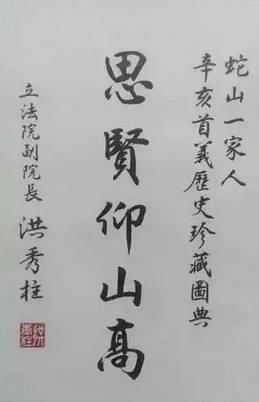 蛇山一家人
辛亥首義歷史珍藏圖典
思賢仰山高
立法院副院長 洪秀柱